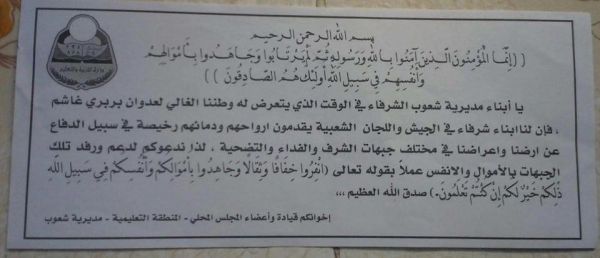 بسم الله الرحمن الرحيم
(( إِنَّمَا الْمُؤْمِنُونَ الَّذِينَ آمَنُوا بِاللَّهِ وَرَسُولِهِ ثُمَّ لَمْ يَرْتَابُوا وَجَاهَدُوا بِأَمْوَالِهِمْ
وَأَنْفُسِهِمْ فِي سَبِيلِ اللَّهِ أُولَئِكَ هُمُ الصَّادِقُونَ ))
يا أبناء مديرية شعوب الشرفاء في الوقت الذي يتعرض له وطننا الغالي لعدوان بربري غاشم
، فإن لنا ابناء شرفاء في الجيش واللجان الشعبية يقدمون ارواحهم ودمائهم رخيصة في سبيل الدفاع
عن ارضنا واعراضنا في مختلف جبهات الشرف والفداء والتضحية ، لذا ندعوكم لدعم ورفد تلك
الجبهات بالأموال والانفس عملاً بقوله تعالى (انْفِرُوا خِفَافًا وَثِقَالًا وَجَاهِدُوا بِأَمْوَالِكُمْ وَأَنْفُسِكُمْ فِي سَبِيلِ اللَّهِ
ذَلِكُمْ خَيْرٌ لَكُمْ إِنْ كُنْتُمْ تَعْلَمُونَ.) صدق الله العظيم ،،،
إخوانكم قيادة وأعضاء المجلس المحلي - المنطقة التعليمية - مديرية شعوب
وزارة التربية والتعليم